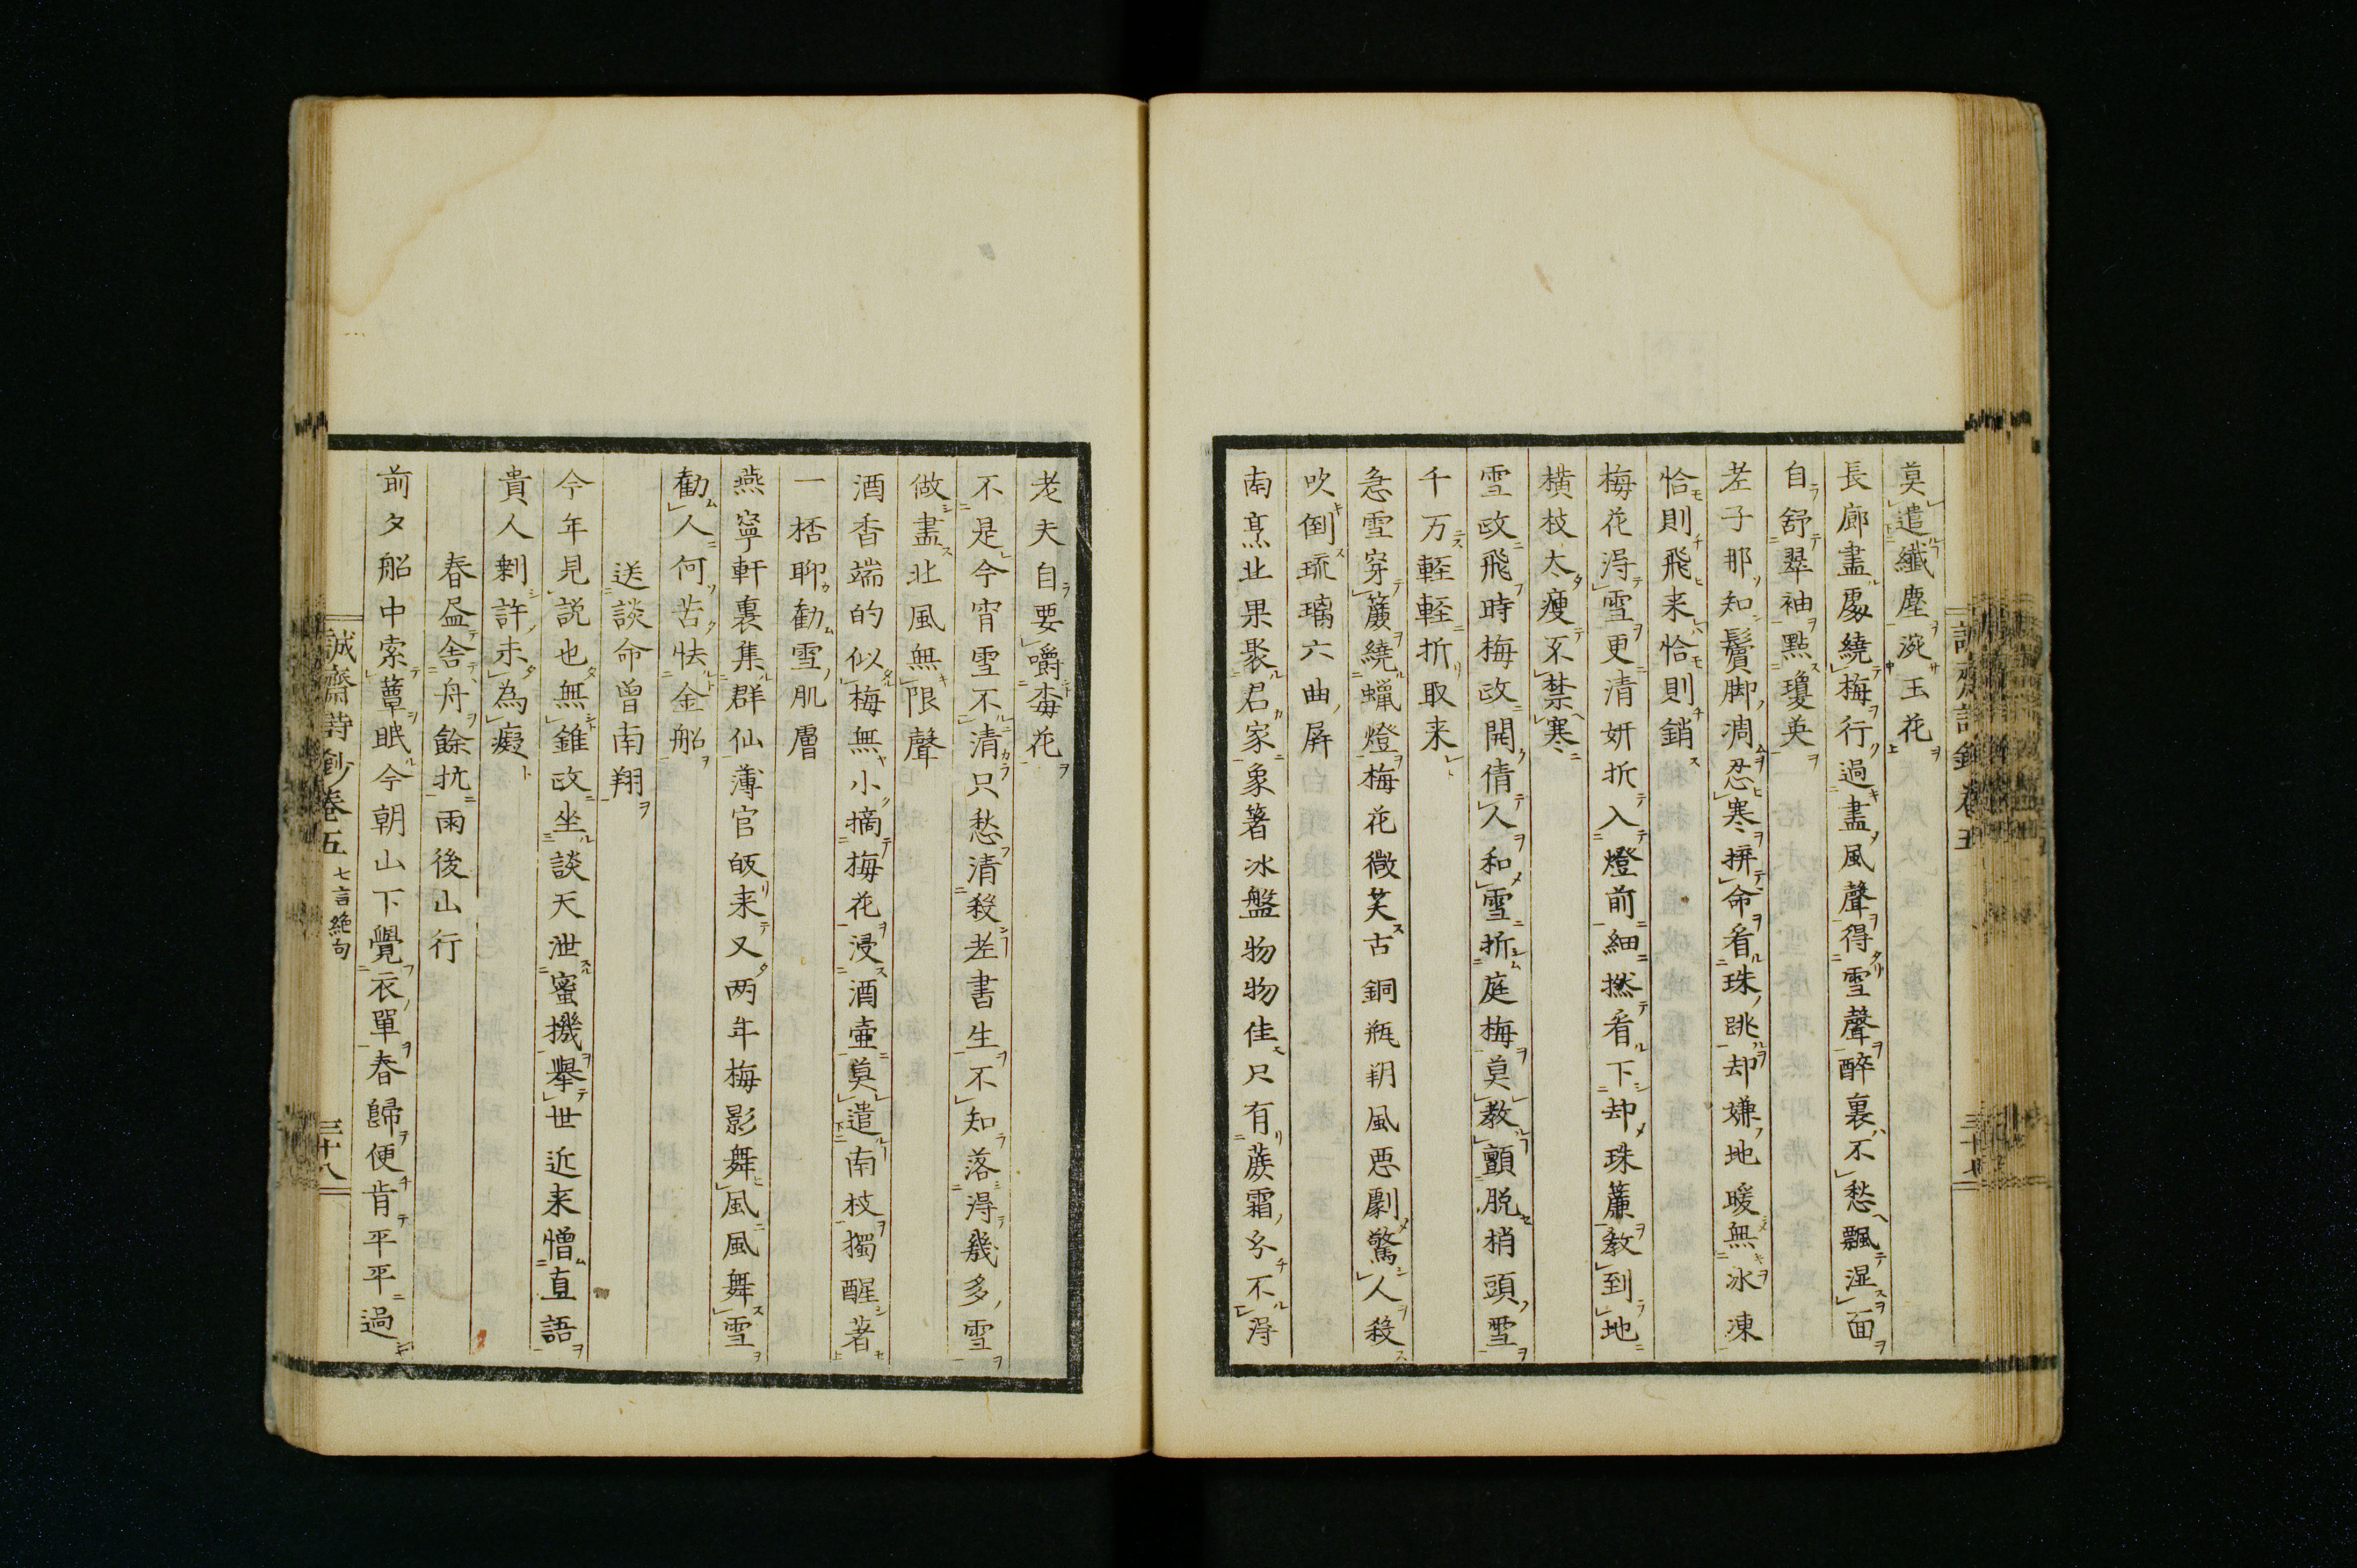 莫遣纖塵涴玉花
長廊盡處繞梅行過盡風聲得雪聲醉裏不愁飄湿面
自舒翠袖點瓊英
老子那知鬢脚凋忍寒拚命看珠跳却嫌地暖無冰凍
恰則飛来恰則銷
梅花得雪更清妍折入燈前細撚看下却珠簾教到地
横枝太瘦不禁寒
雪政飛時梅政開倩人和雪折庭梅莫教顫脱梢頭雪
千万輕輕折取来
急雪穿簾繞蠟燈梅花微笑古銅瓶朔風悪劇驚人殺
吹倒琉璃六曲屏
南烹北果聚君家象箸冰盤物物佳只有蔗霜分不得
老夫自要嚼梅花
不是今宵雪不清只愁清殺老書生不知落得幾多雪
做盡北風無限聲
酒香端的似梅無小摘梅花浸酒壷莫遣南枝獨醒著
一桮聊勸雪肌膚
燕寧軒裏集群仙薄官皈来又两年梅影舞風風舞雪
勸人何苦怯金船
送談命曽南翔
今年見説也無錐政坐談天泄蜜機擧世近来憎直語
貴人剰許未為癡
春盡舎舟餘杭雨後山行
前夕船中索蕈眠今朝山下覺衣單春歸便肯平平過
誠齋詩鈔卷五 七言絶句 三十八